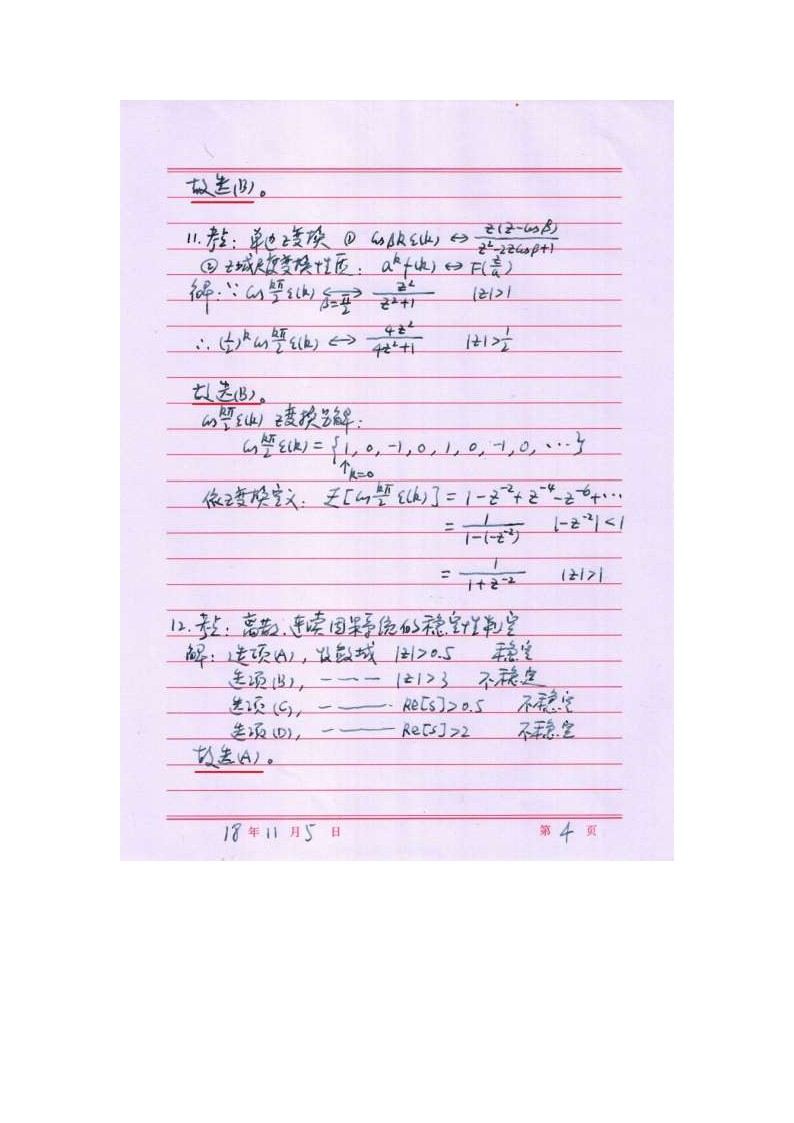 故选(B)。
11.考点：单边z变换 ① cosβk ε(k) ↔ z(z-cosβ)/(z²-2zcosβ+1)
② z域尺度变换性质：a^k f(k) ↔ F(z/a)
解：∵ cos kπ/2 ε(k) ←→(β=π/2) z²/(z²+1) |z|>1
∴ (1/2)^k cos kπ/2 ε(k) ↔ 4z²/(4z²+1) |z|>1/2
故选(B)。
cos kπ/2 ε(k) z变换另解：
cos kπ/2 ε(k) = {1, 0, -1, 0, 1, 0, -1, 0, ⋯}
↑k=0
依z变换定义：Z[cos kπ/2 ε(k)] = 1-z⁻²+z⁻⁴-z⁻⁶+⋯
= 1/(1-(-z⁻²)) |-z⁻²|<1
= 1/(1+z⁻²) |z|>1
12.考点：离散、连续因果系统的稳定性判定
解：选项(A)，收敛域 |z|>0.5 稳定
选项(B)，——— |z|>3 不稳定
选项(C)，——— Re[s]>0.5 不稳定
选项(D)，——— Re[s]>2 不稳定
故选(A)。
18年11月5日 第4页